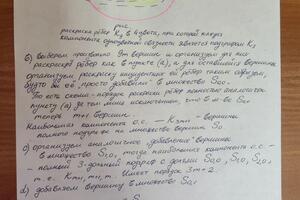 рис
раскраска рёбер K₉ в 4 цвета, при которой каждая
компонента одноцветной связности является подграфом K₃
б) выберем произвольно 9m вершин и организуем для них
раскраску рёбер как в пункте (а), а для оставшейся вершины
организуем раскраску инцидентных ей рёбер таким образом,
будто бы её "просто добавили" в множество S₀₀.
То есть схема-порядок раскраски рёбер полностью аналогичен
пункту (а) за тем лишь исключением, что в м-ве S₀₀
теперь m+1 вершин.
Наибольшая компонента о.с. — K₃ₘ₊₁ — вершины
полного подграфа на множестве вершин S₀
с) организуем аналогичное "добавление" вершины
в множество S₁₀, тогда наибольшая компонента о.с. -
- полный 3-дольный подграф с долями S₀₀, S₁₀, S₂₀,
т.е. Имеет порядок 3m+2.
d) добавляем вершину в множество S₀₁